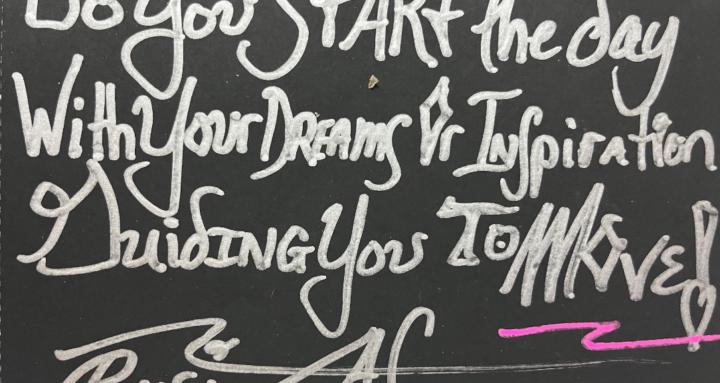 Do You START the day
With Your DREAMS Or Inspiration
GuiDING You To MOve!